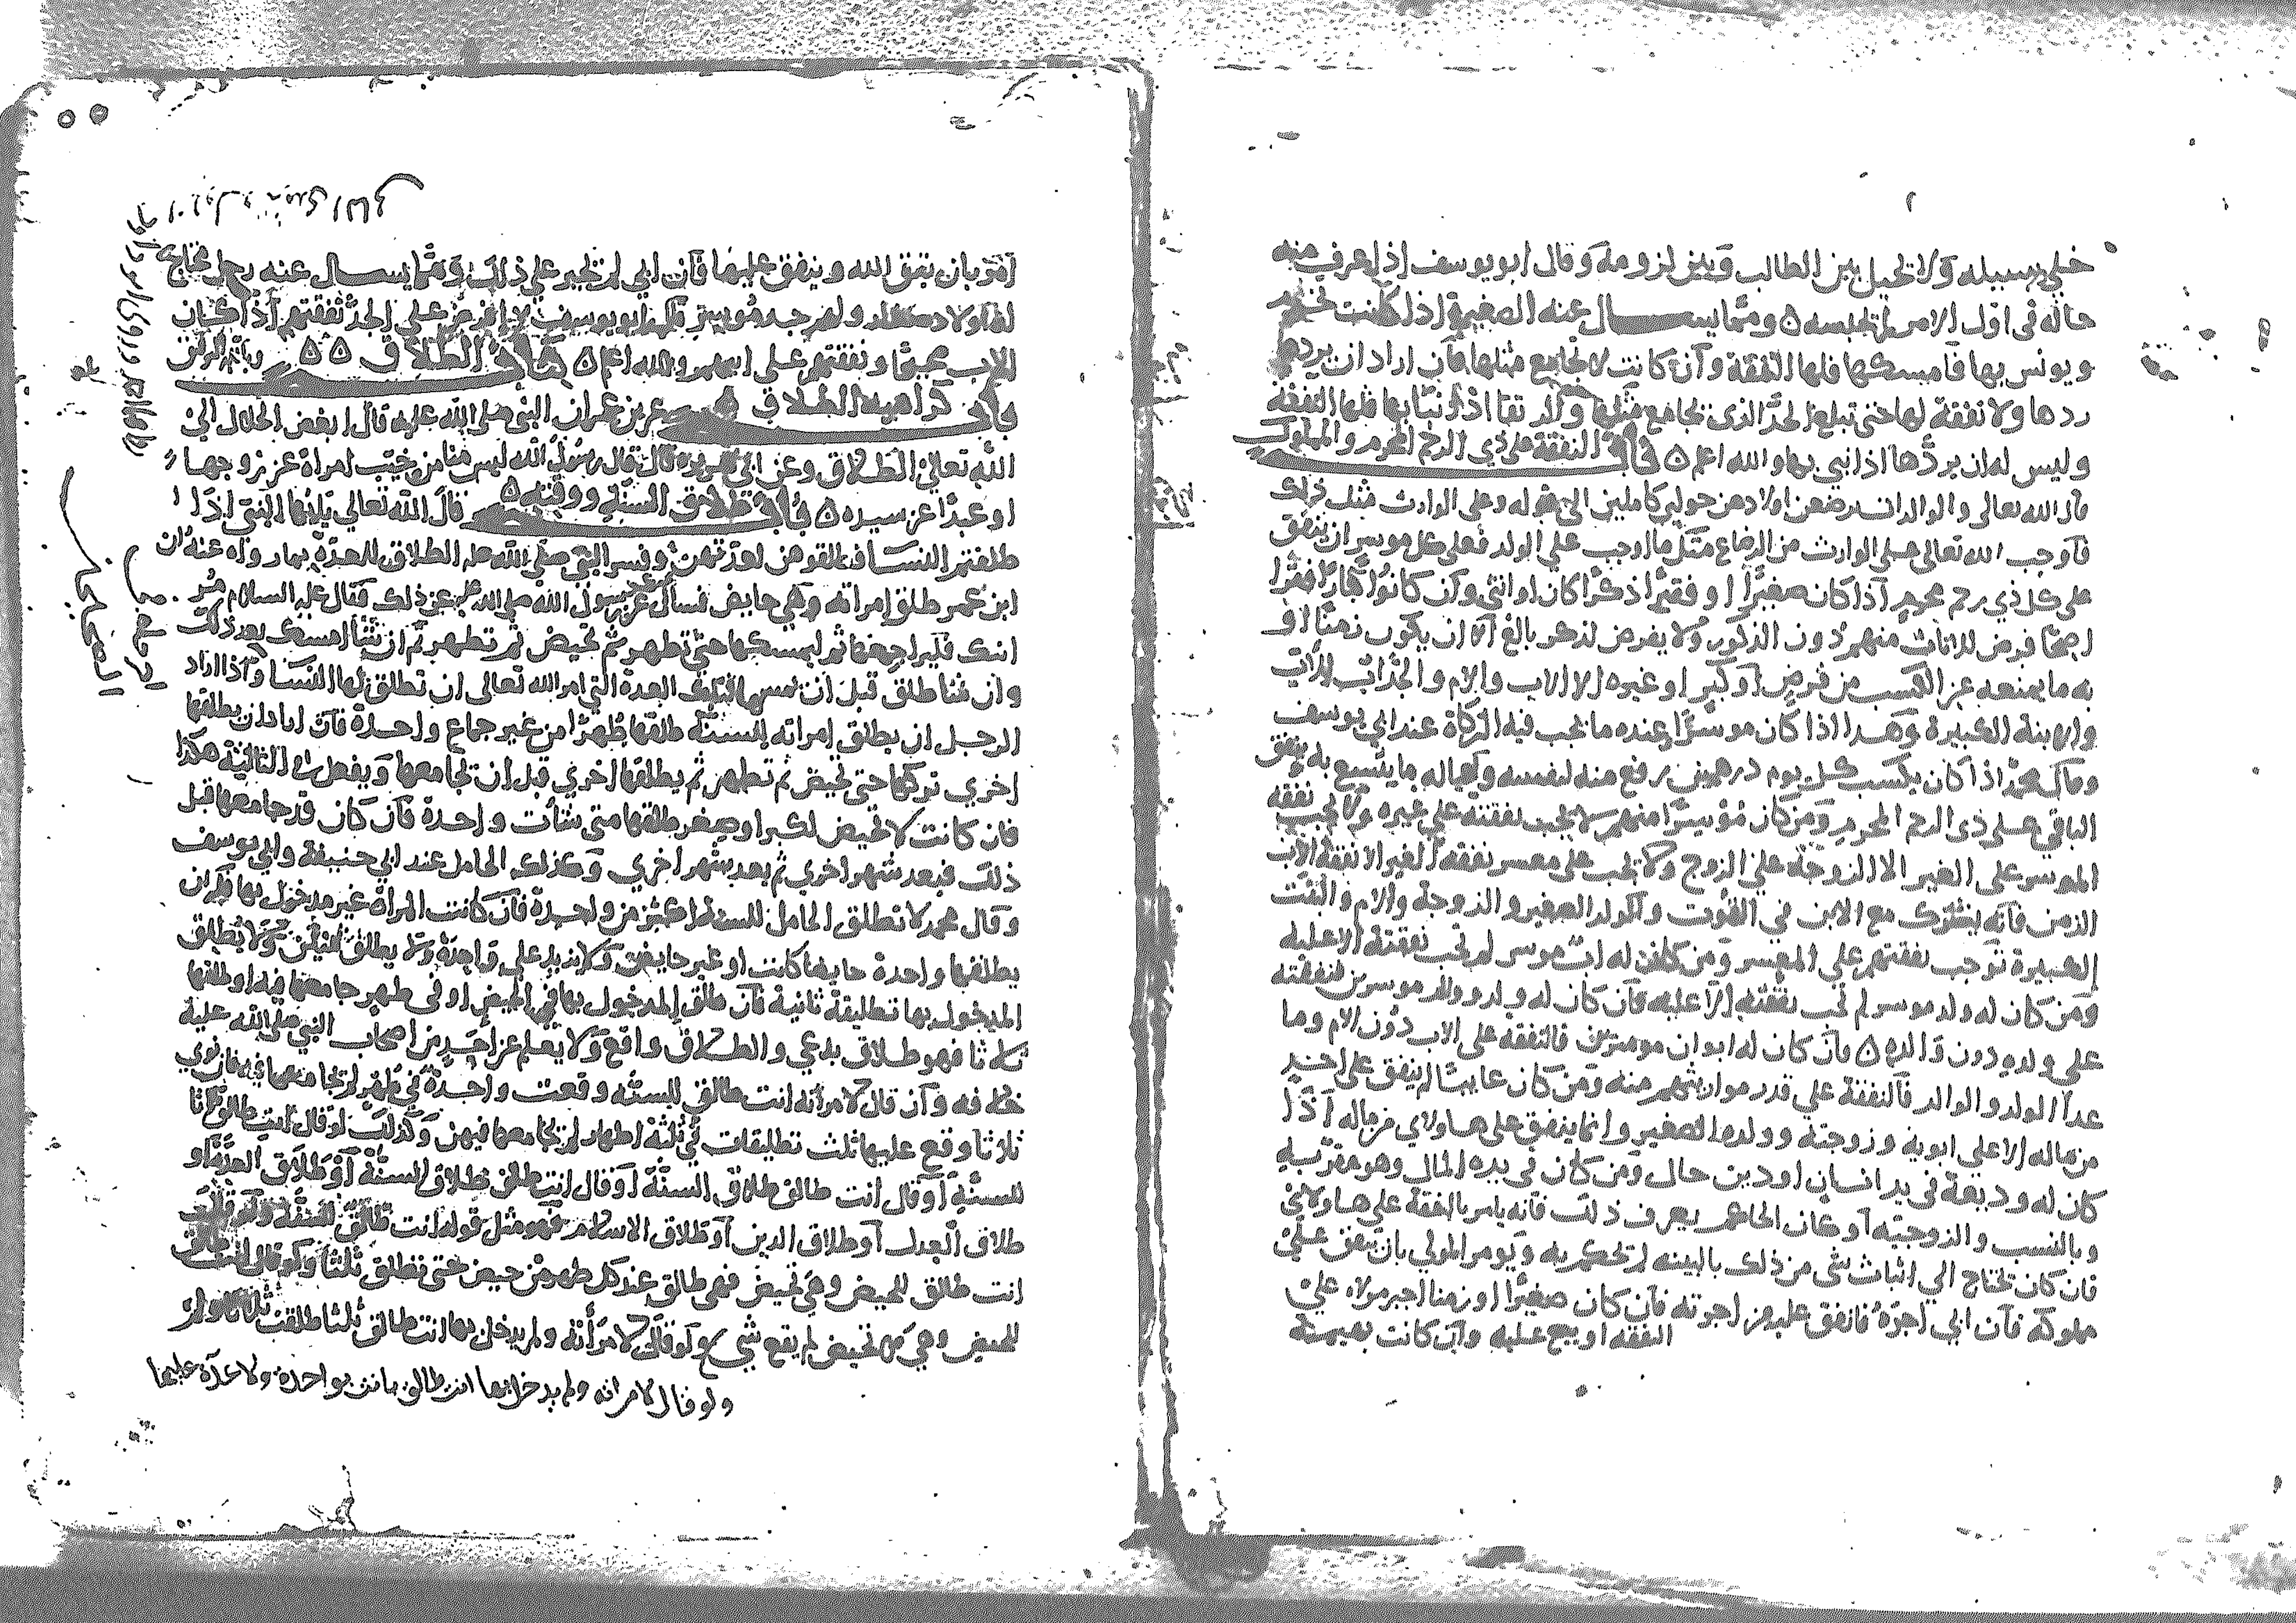 خلي سبيله ولا تحيل بين الطالب وبين لزومه وقال ابو يوسف اذا عرف منه
حاله في اول الامر لم تحبسه ٥ ومما يسال عنه الصغيرة اذا كانت تخدم
ويونس بها فامسكها فلها النفقة وان كانت لا تجامع مثلها فان اراد ان يردها
ردها ولا نفقة لها حتى تبلغ الحد الذي تجامع مثلها اذا بنا بها فلها النفقة
وليس له ان يردها اذا بني بها والله اعلم ٥ باب النفقة على ذي الرحم المحرم والمملوك
قال الله تعالى والوالدات يرضعن اولادهن حولين كاملين الى قوله وعلى الوارث مثل ذلك
فاوجب الله تعالى على الوارث من الرضاع مثل ما اوجب على الولد فعلى كل موسر ان ينفق
على كل ذي رحم محرم اذا كان صغيرا او فقيرا ذكرا كان او انثى وان كانوا كبارا فقرا
اصحا فرض للاناث منهم دون الذكور ولا يفرض لذكر بالغ الا ان يكون زمنا او
به ما يمنعه عن الكسب من مرض او كبر او غيره الا الاب والام والجدات
والابنة الكبيرة وهذا اذا كان موسرا عنده ما تجب فيه الزكاة عند ابي يوسف
وقال محمد اذا كان يكسب كل يوم درهمين رفع منه لنفسه وعياله ما يتسع به ينفق
الباقي على ذي الرحم المحرم ومن كان موسرا منهم لا تجب نفقته على غيره ولا تجب نفقه
الموسر على الغير الا الزوجة على الزوج ولا تجب على معسر نفقه الغير الا نفقة الاب
الزمن فانه يشترك مع الابن في القوت والولد الصغير والزوجة والام والبنت
الكبيرة توجب نفقتهم على المعسر ومن كان له اب موسر لم تجب نفقته الا عليه
ومن كان له ولد موسر لم تجب نفقته الا عليه فان كان له ولد ووالد موسرين فنفقته
على ولده دون والده ٥ فان كان له ابوان موسرين فالنفقه على الاب دون الام وما
عدا الولد والوالد فالنفقة على قدر مواريثهم منه ومن كان غايبا لم ينفق على احد
من ماله الا على ابويه وزوجته وولده الصغير وانما ينفق على هاولاي من ماله اذا
كان له وديعة في يد انسان او دين حال ومن كان في يده المال وهو مقر به
وبالنسب والزوجيه او كان الحاكم يعرف ذلك فانه يامر بالنفقة على هاولاي
فان كان تحتاج الى اثبات شي من ذلك بالبينه لم تحكم به ويومر المولي بان ينفق على
مملوكه فان ابي اجره فانفق عليه من اجرته فان كان صغيرا او زمنا اجبر مولاه على
النفقه او بيع عليه وان كانت بهيمة
امر بان يتق الله وينفق عليها فان ابي لم تجبر على ذلك ومما يسال عنه رجل محتاج
له اولاد صغار ولهم جد موسر قال ابو يوسف لا افرض على الجد نفقتهم اذا كان
الاب صحيحا ونفقتهم على ابيهم والله اعلم ٥ كتاب الطلاق ٥٥
باب كراهية الطلاق عن عن النبي صلى الله عليه قال ابغض الحلال الى
الله تعالى الطلاق وعن ابي هريره قال قال رسول الله ليس منا من خبب امراة عن زوجها
او عبدا عن سيده ٥ باب طلاق السنة ووقته ٥ قال الله تعالى يا ايها النبي اذا
طلقتم النسا فطلقوهن لعدتهن وفسر النبي صلى الله عليه الطلاق للعدة بما رواه عنه ان
ابن عمر طلق امراته وهي حايض فسال عمر رسول الله صلى الله عليه عن ذلك فقال عليه السلام مر
ابنك فليراجعها ثم ليمسكها حتى تطهر ثم تحيض ثم تطهر ثم ان شا امسك بعد ذلك
وان شا طلق قبل ان يمسها فتلك العدة التي امر الله تعالى ان تطلق لها النسا واذا اراد
الرجل ان يطلق امراته للسنة طلقها طهرا من غير جماع واحدة فان اراد ان يطلقها
اخري تركها حتى تحيض ثم تطهر ثم يطلقها اخري قبل ان تجامعها ويفعل في الثالثة هكذا
فان كانت لا تحيض لكبر او صغر طلقها متى شات واحدة فان كان قد جامعها قبل
ذلك فبعد شهر اخري ثم بعد شهر اخري وكذلك الحامل عند ابي حنيفة وابي يوسف
وقال محمد لا تطلق الحامل للسنة اكثر من واحدة فان كانت المراة غير مدخول بها فله ان
يطلقها واحدة حايضا كانت او غير حايض ولا يزيد على واحدة ولا يطلق
المدخول بها تطليقة ثانية فان طلق المدخول بها في الحيض او في طهر جامعها فيه او طلقها
ثلاثا فهو طلاق بدعي والطلاق واقع ولا يعلم عن احد من اصحاب النبي صلى الله علية
خلافه وان قال لامراته انت طالق للسنه وقعت واحدة في طهر لم تجامعها فيه فان نوي
ثلاثا وقع عليها ثلث تطليقات في ثلثة اطهار لم تجامعها فيهن وكذلك لو قال انت طالق ثلاثا
للسنة او قال انت طالق طلاق السنة او قال انت طالق طلاق السنة او طلاق العدة او
طلاق العدل او طلاق الدين او طلاق الاسلام فهو مثل قوله انت طالق للسنة ولو قال
انت طالق للحيض وهي تحيض فهي طالق عند كل طهر من حيض حتى تطلق ثلثا ولو قال انت طالق
للحيض وهي لا تحيض لم يقع شي ولو قال لامراته ولم يدخل بها انت طالق ثلثا طلقت ثلاثا
ولو قال لامراته ولم يدخل بها انت طالق بانت بواحدة ولا عدة عليها